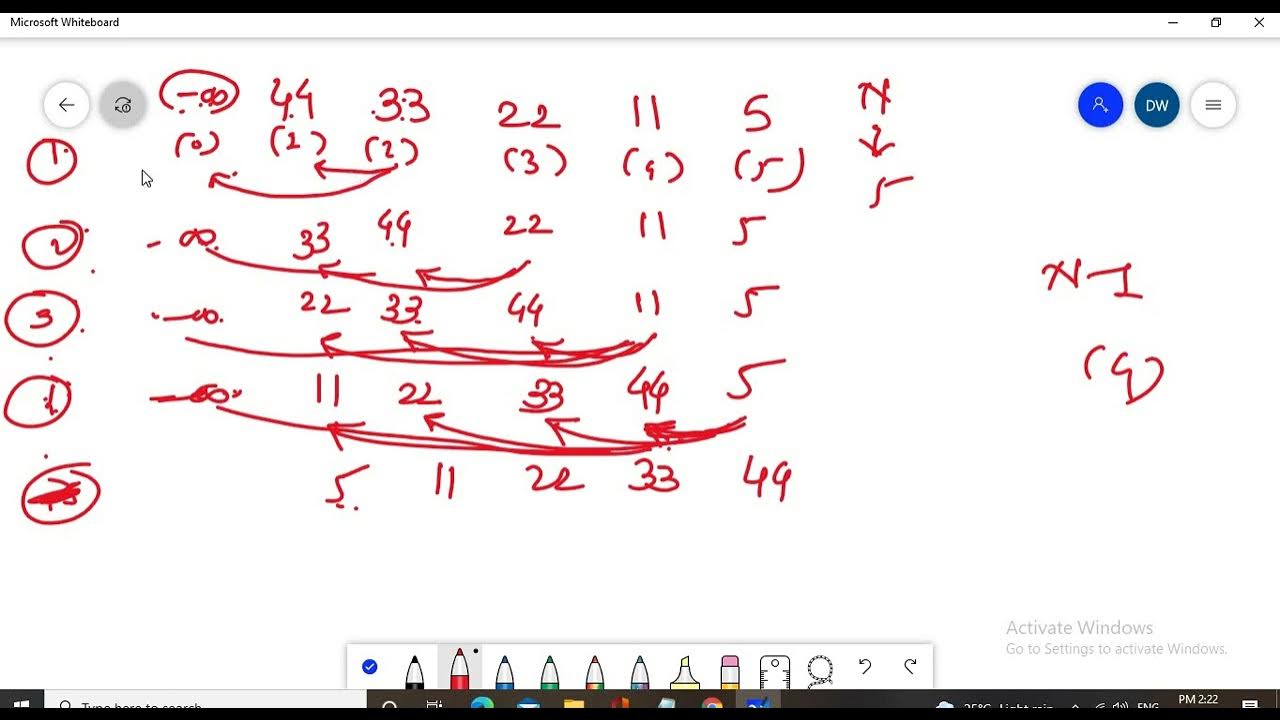 Microsoft Whiteboard
-∞ 44 33 22 11 5 N
1 (0) (1) (2) (3) (4) (5) 5
DW
2 -∞ 33 44 22 11 5
N-1
3 -∞ 22 33 44 11 5
(4)
4 -∞ 11 22 33 44 5
5 11 22 33 44
Activate Windows
Go to Settings to activate Windows.
Type here to search
25°C Light rain ENG PM 2:22